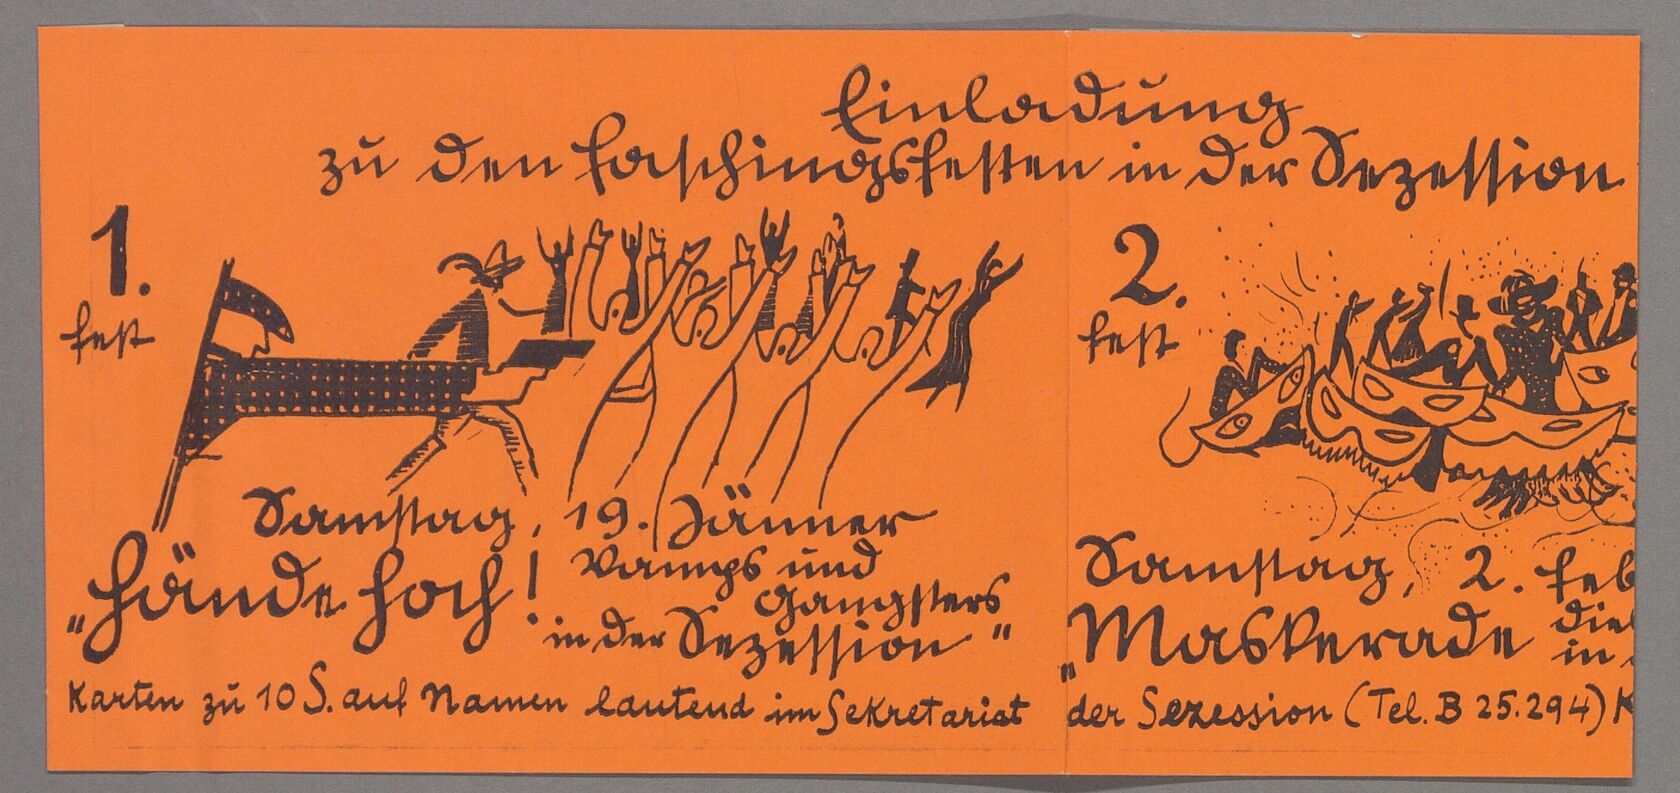 Einladung
zu den Faschingsfesten in der Sezession
1.
Fest
Samstag, 19. Jänner
„Hände hoch! Vamps und
Gangsters
in der Sezession"
Karten zu 10 S. auf Namen lautend im Sekretariat
2.
Fest
Samstag, 2. Feb
„Maskerade
in
der Sezession (Tel. B 25.294) K